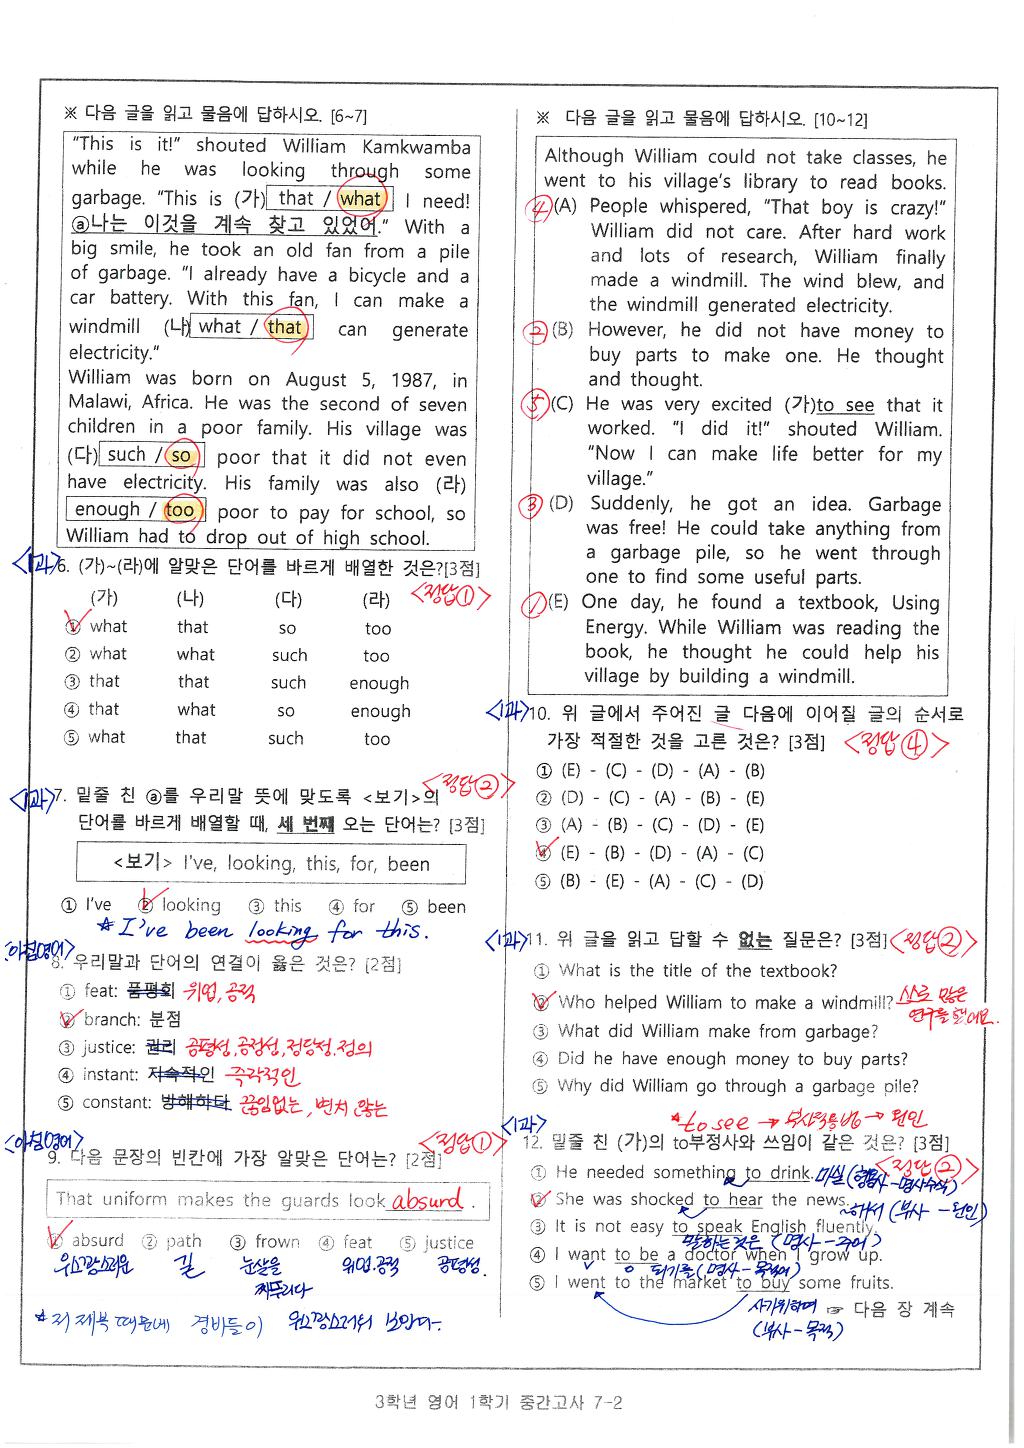 ※ 다음 글을 읽고 물음에 답하시오. [6~7]
"This is it!" shouted William Kamkwamba
while he was looking through some
garbage. "This is (가) that / what I need!
ⓐ나는 이것을 계속 찾고 있었어." With a
big smile, he took an old fan from a pile
of garbage. "I already have a bicycle and a
car battery. With this fan, I can make a
windmill (나) what / that can generate
electricity."
William was born on August 5, 1987, in
Malawi, Africa. He was the second of seven
children in a poor family. His village was
(다) such / so poor that it did not even
have electricity. His family was also (라)
enough / too poor to pay for school, so
William had to drop out of high school.
<1과>
6. (가)~(라)에 알맞은 단어를 바르게 배열한 것은?[3점]
<정답①>
(가) (나) (다) (라)
① what that so too
② what what such too
③ that that such enough
④ that what so enough
⑤ what that such too
<정답②>
<1과>
7. 밑줄 친 ⓐ를 우리말 뜻에 맞도록 <보기>의
단어를 바르게 배열할 때, 세 번째 오는 단어는? [3점]
<보기> I've, looking, this, for, been
① I've ② looking ③ this ④ for ⑤ been
* I've been looking for this.
<아침영어>
8. 우리말과 단어의 연결이 옳은 것은? [2점]
① feat: 품평회 위업, 공적
② branch: 분점
③ justice: 권리 공평성, 공정성, 정당성, 정의
④ instant: 지속적인 즉각적인
⑤ constant: 방해하다 끊임없는, 변치 않는
<아침영어>
<정답①>
9. 다음 문장의 빈칸에 가장 알맞은 단어는? [2점]
That uniform makes the guards look absurd .
① absurd ② path ③ frown ④ feat ⑤ justice
우스꽝스러운 길 눈살을 위업.공적 공평성.
찌푸리다
* 저 제복 때문에 경비들이 우스꽝스러워 보인다.
※ 다음 글을 읽고 물음에 답하시오. [10~12]
Although William could not take classes, he
went to his village's library to read books.
④ (A) People whispered, "That boy is crazy!"
William did not care. After hard work
and lots of research, William finally
made a windmill. The wind blew, and
the windmill generated electricity.
② (B) However, he did not have money to
buy parts to make one. He thought
and thought.
⑤ (C) He was very excited (가)to see that it
worked. "I did it!" shouted William.
"Now I can make life better for my
village."
③ (D) Suddenly, he got an idea. Garbage
was free! He could take anything from
a garbage pile, so he went through
one to find some useful parts.
① (E) One day, he found a textbook, Using
Energy. While William was reading the
book, he thought he could help his
village by building a windmill.
<1과>
10. 위 글에서 주어진 글 다음에 이어질 글의 순서로
가장 적절한 것을 고른 것은? [3점]
<정답④>
① (E) - (C) - (D) - (A) - (B)
② (D) - (C) - (A) - (B) - (E)
③ (A) - (B) - (C) - (D) - (E)
④ (E) - (B) - (D) - (A) - (C)
⑤ (B) - (E) - (A) - (C) - (D)
<1과>
11. 위 글을 읽고 답할 수 없는 질문은? [3점]
<정답②>
① What is the title of the textbook?
② Who helped William to make a windmill? 스스로 많은
연구를 했어요.
③ What did William make from garbage?
④ Did he have enough money to buy parts?
⑤ Why did William go through a garbage pile?
* to see → 부사적용법 → 원인
<1과>
12. 밑줄 친 (가)의 to부정사와 쓰임이 같은 것은? [3점]
<정답②>
① He needed something to drink. 마실 (형용사-명사수식)
② She was shocked to hear the news.
~해서 (부사 - 원인)
③ It is not easy to speak English fluently.
말하는것은 (명사-주어)
④ I want to be a doctor when I grow up.
되기를 (명사-목적어)
⑤ I went to the market to buy some fruits.
사기위하여
(부사-목적)
☞ 다음 장 계속
3학년 영어 1학기 중간고사 7-2